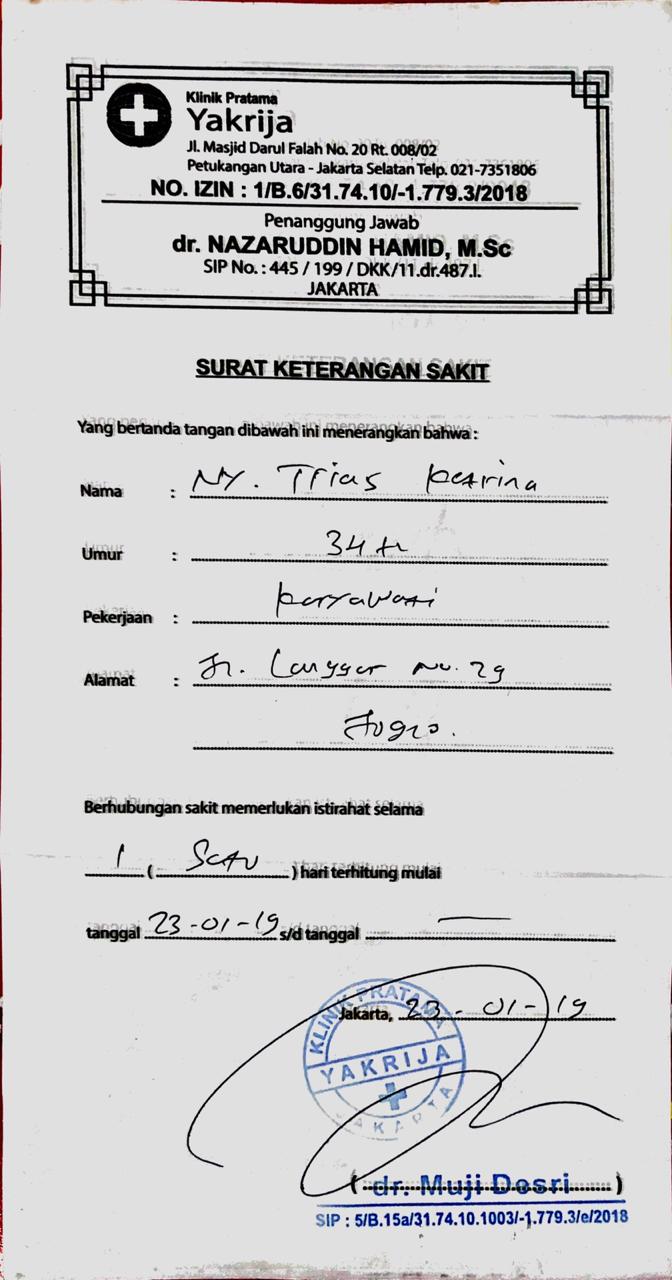 Klinik Pratama
Yakrija
Jl. Masjid Darul Falah No. 20 Rt. 008/02
Petukangan Utara - Jakarta Selatan Telp. 021-7351806
NO. IZIN : 1/B.6/31.74.10/-1.779.3/2018
Penanggung Jawab
dr. NAZARUDDIN HAMID, M.Sc
SIP No. : 445 / 199 / DKK/11.dr.487.I.
JAKARTA
SURAT KETERANGAN SAKIT
Yang bertanda tangan dibawah ini menerangkan bahwa :
Nama : NY. Trias
Umur : 34 th
Pekerjaan : Karyawati
Alamat : Jl. Langgar No. 29
Joglo.
Berhubungan sakit memerlukan istirahat selama
1 ( Satu ) hari terhitung mulai
tanggal 23-01-19 s/d tanggal —
Jakarta, 23-01-19
KLINIK PRATAMA
YAKRIJA
JAKARTA
( dr. Muji Dosri )
SIP : 5/B.15a/31.74.10.1003/-1.779.3/e/2018